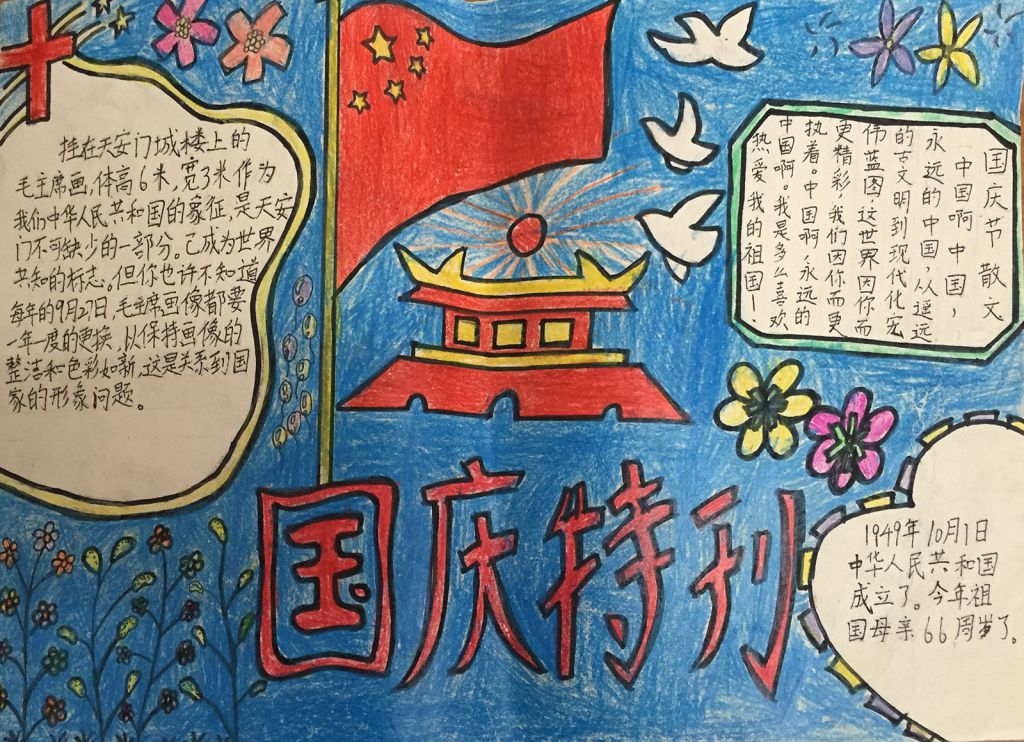 挂在天安门城楼上的
毛主席画,体高6米,宽3米作为
我们中华人民共和国的象征,是天安
门不可缺少的一部分。己成为世界
共知的标志。但你也许不知道
每年的9月27日,毛主席画像都要
一年一度的更换,以保持画像的
整洁和色彩如新,这是关系到国
家的形象问题。
国庆节散文
中国啊中国,
永远的中国,从遥远
的古文明到现代化宏
伟蓝图,这世界因你而
更精彩,我们因你而更
执着。中国啊,永远的
中国啊。我是多么喜欢
热爱我的祖国!
国庆特刊
1949年10月1日
中华人民共和国
成立了。今年祖
国母亲66周岁了。